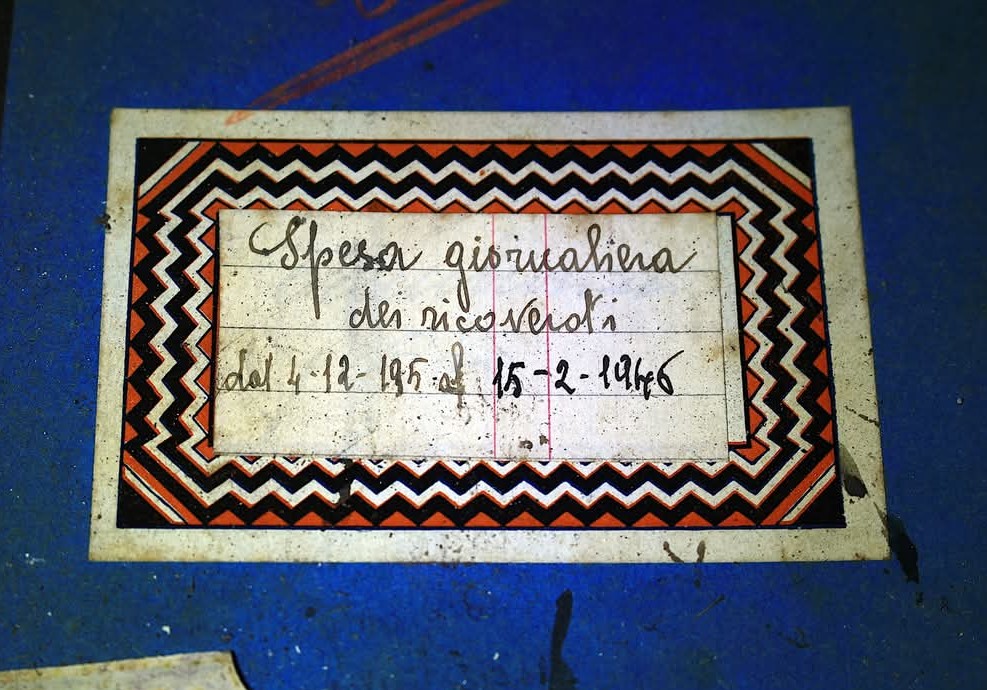 Spesa giornaliera
dei ricoverati
dal 4-12-195 al 15-2-1946